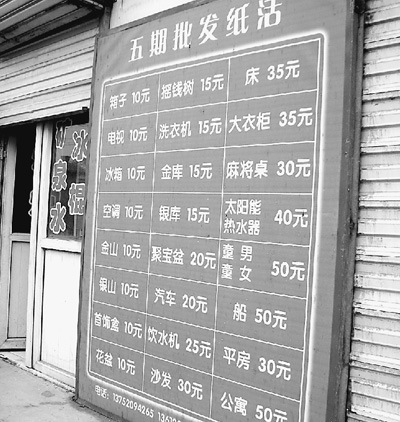 五期批发纸活
箱子 10元 摇钱树 15元 床 35元
电视 10元 洗衣机 15元 大衣柜 35元
冰箱 10元 金库 15元 麻将桌 30元
空调 10元 银库 15元 太阳能
热水器 40元
金山 10元 聚宝盆 20元 童男
童女 50元
银山 10元 汽车 20元 船 50元
首饰盒 10元 饮水机 25元 平房 30元
花盆 10元 沙发 30元 公寓 50元
电话: 13752094265
矿泉水
冰棍